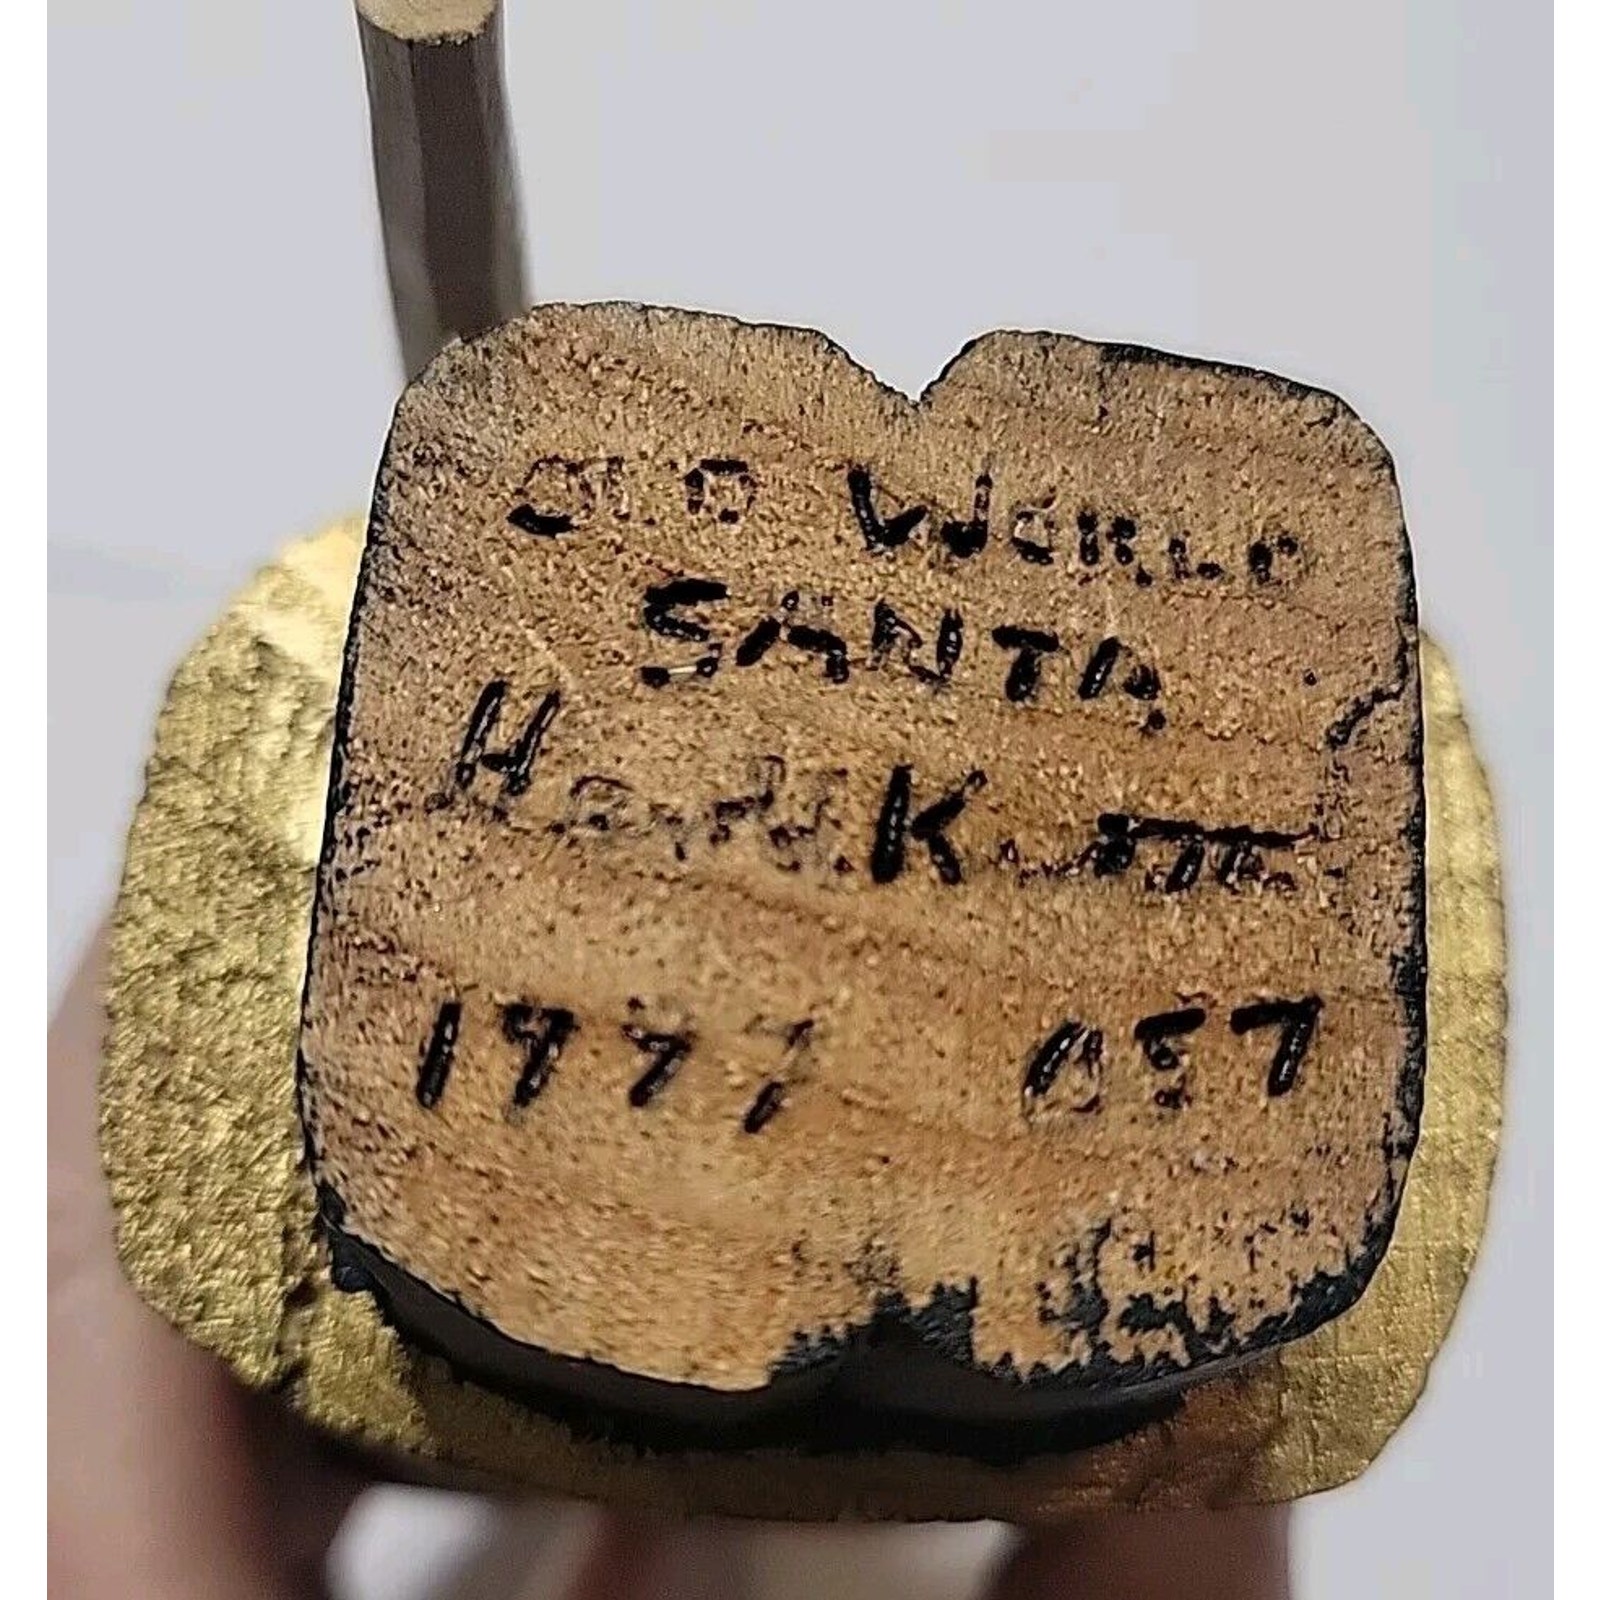 OLD WORLD
SANTA
1997 057